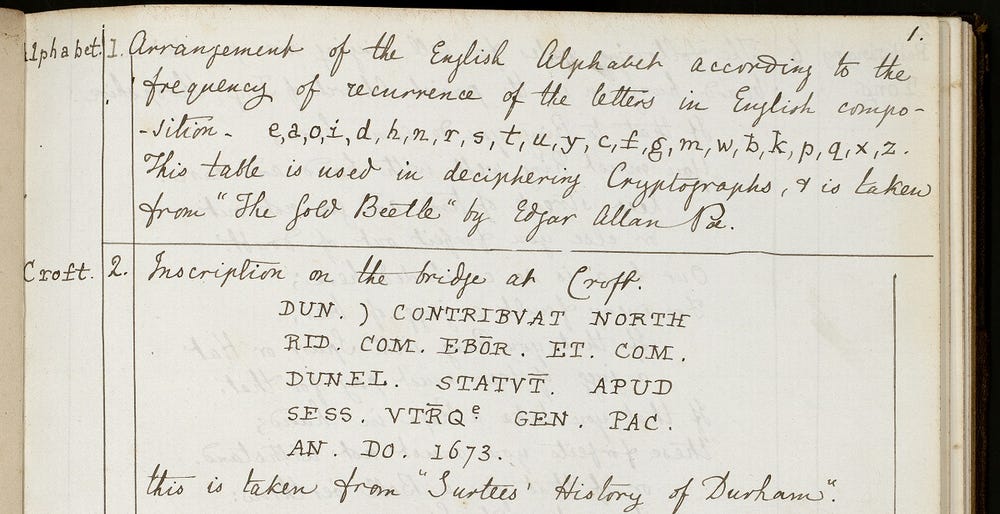 1.
Alphabet. 1. Arrangement of the English Alphabet according to the
frequency of recurrence of the letters in English compo-
-sition. e,a,o,i,d,h,n,r,s,t,u,y,c,f,g,m,w,b,k,p,q,x,z.
This table is used in deciphering Cryptographs, & is taken
from "The Gold Beetle" by Edgar Allan Poe.
Croft. 2. Inscription on the bridge at Croft.
DUN. ) CONTRIBVAT NORTH
RID. COM. EBŌR. ET. COM.
DUNEL. STATVT̄. APUD
SESS. VTR̄Qᵉ. GEN. PAC.
AN. DO. 1673.
this is taken from "Surtees' History of Durham".